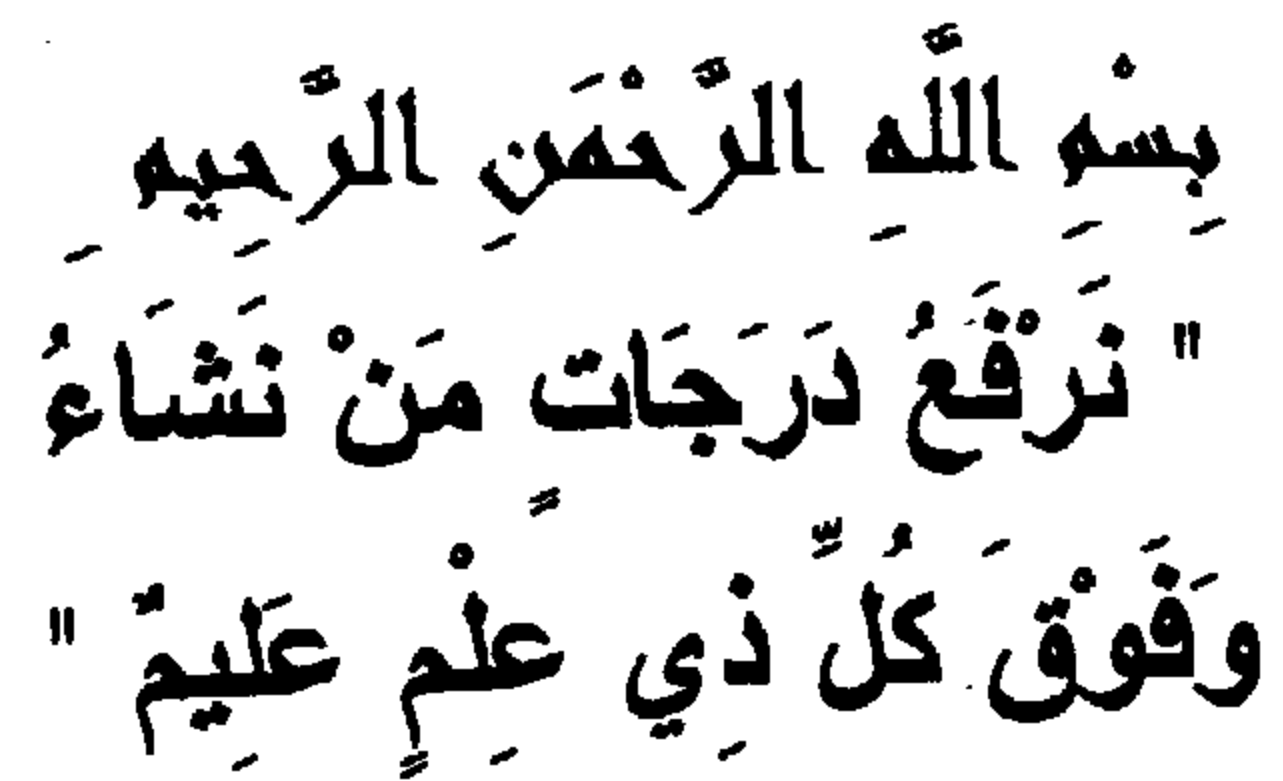 بِسْمِ اللَّهِ الرَّحْمَنِ الرَّحِيمِ
" نَرْفَعُ دَرَجَاتٍ مَنْ نَشَاءُ
وَفَوْقَ كُلِّ ذِي عِلْمٍ عَلِيمٌ "